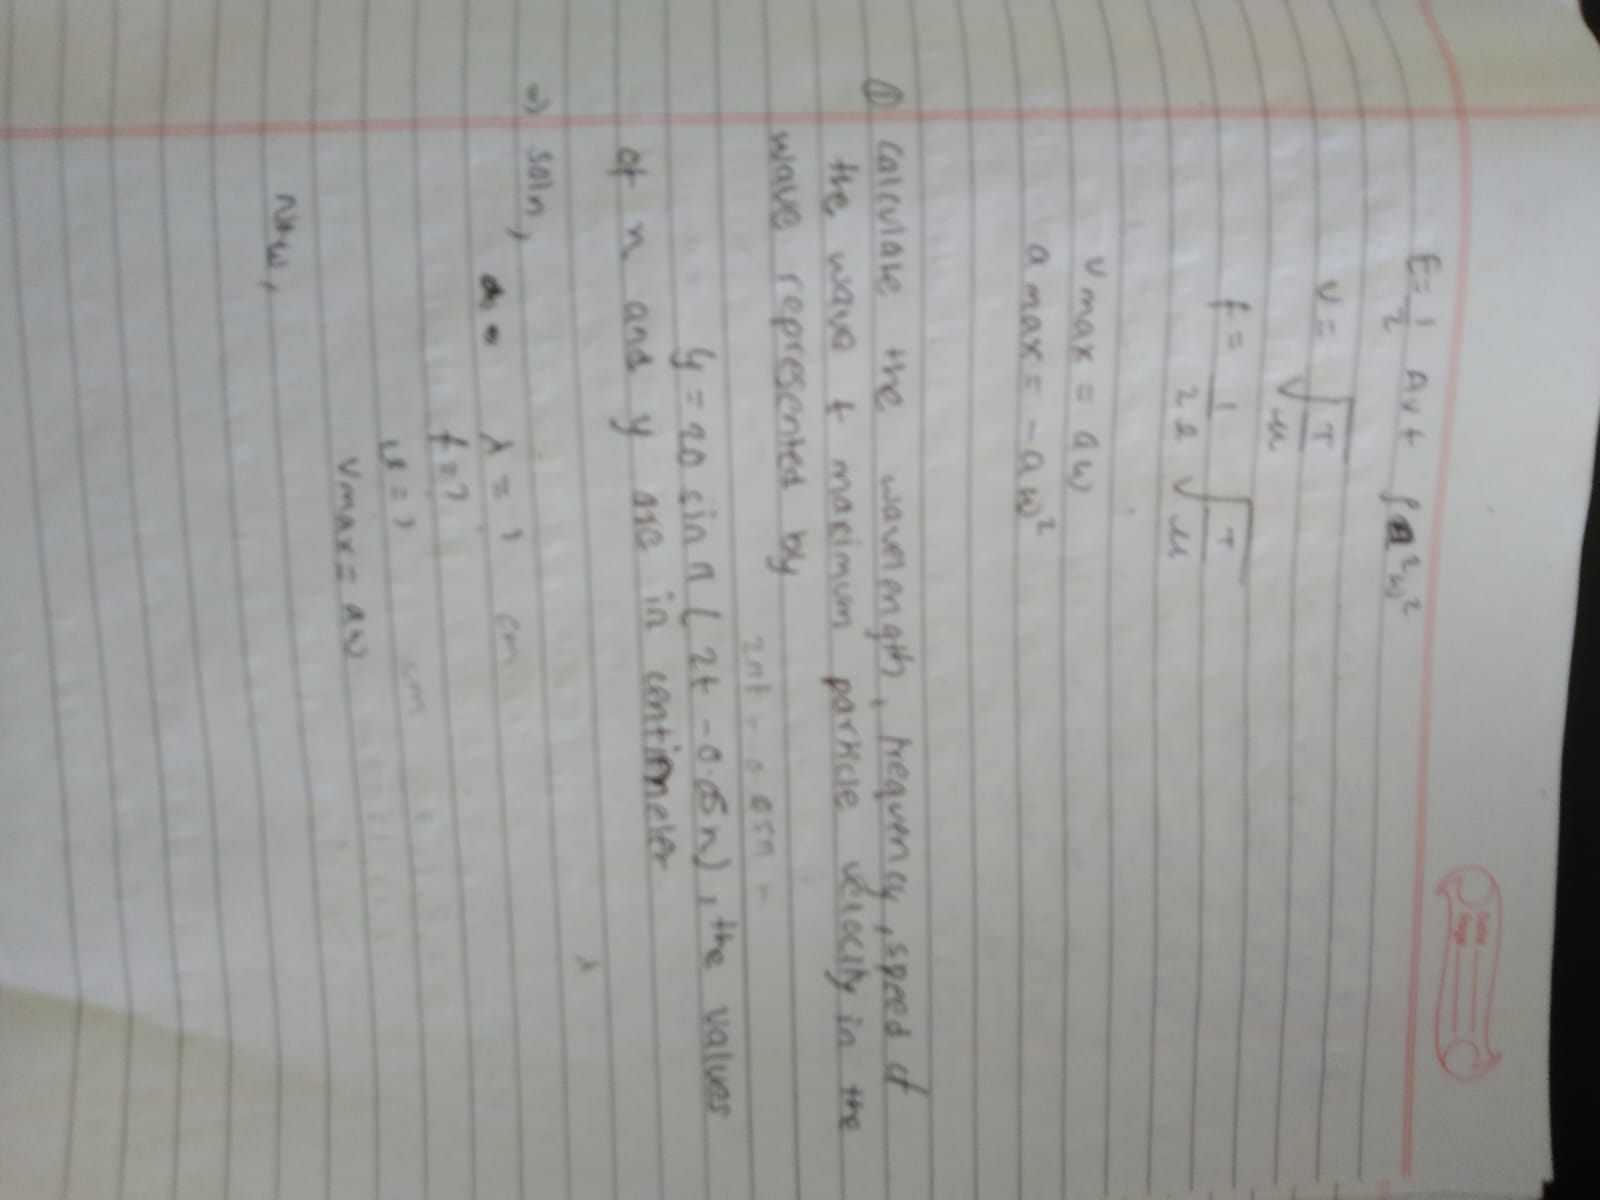 Date
Page
E = 1/2 Avt ρa²ω²
v = √T/μ
f = 1/2l √T/μ
vmax = aω
amax = -aω²
① Calculate the wavelength, frequency, speed of
the wave & maximum particle velocity in the
wave represented by
2πt - 0.05π -
y = 20 sin π (2t - 0.05x), the values
of x and y are in centimeter
λ
⇒ soln,
λ = ? cm
f = ?
v = ? cm
Vmax = aω
Now,